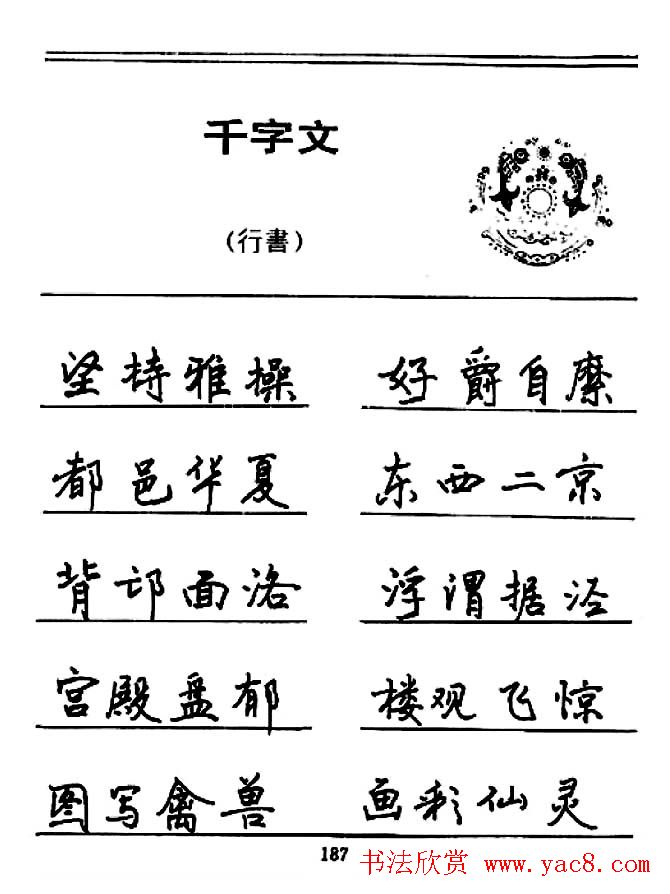 千字文
(行書)
坚持雅操 好爵自縻
都邑华夏 东西二京
背邙面洛 浮渭据泾
宫殿盘郁 楼观飞惊
图写禽兽 画彩仙灵
187
书法欣赏 www.yac8.com